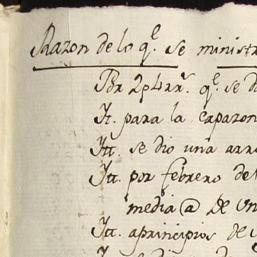 Razon de lo q.e se ministr
Por 2p4rr.s q.e se d
It. para la caparzon
Itt. se dio una arro
Itt. por febrero de
media @ de un
Itt. aprincipios de